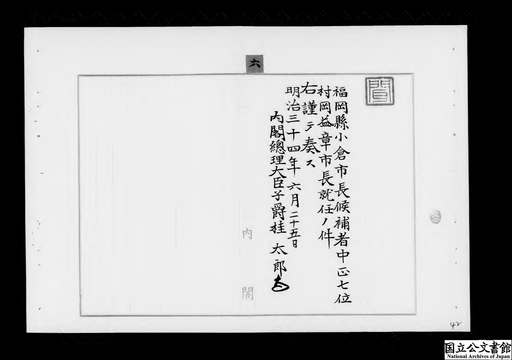 六
聞
福岡縣小倉市長候補者中正七位
村岡益章市長就任ノ件
右謹テ奏ス
明治三十四年六月二十五日
内閣總理大臣子爵桂太郎
内閣
42
国立公文書館
National Archives of Japan